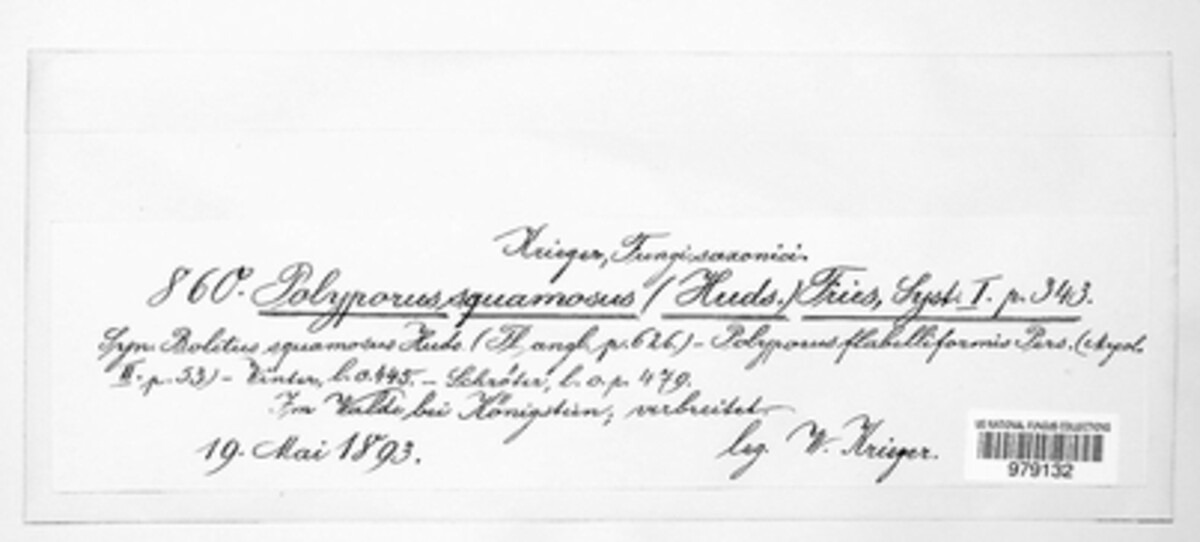 Krieger, Fungi saxonici.
860. Polyporus squamosus (Huds.) Fries, Syst. I. p. 343.
Syn. Boletus squamosus Huds. (Fl. angl. p. 626.) – Polyporus flabelliformis Pers. (Mycol.
III. p. 53) – Winter, l. c. 445. – Schröter, l. c. p. 479.
Im Walde bei Königstein, verbreitet
19. Mai 1893. leg. W. Krieger.
US NATIONAL FUNGUS COLLECTIONS
979132